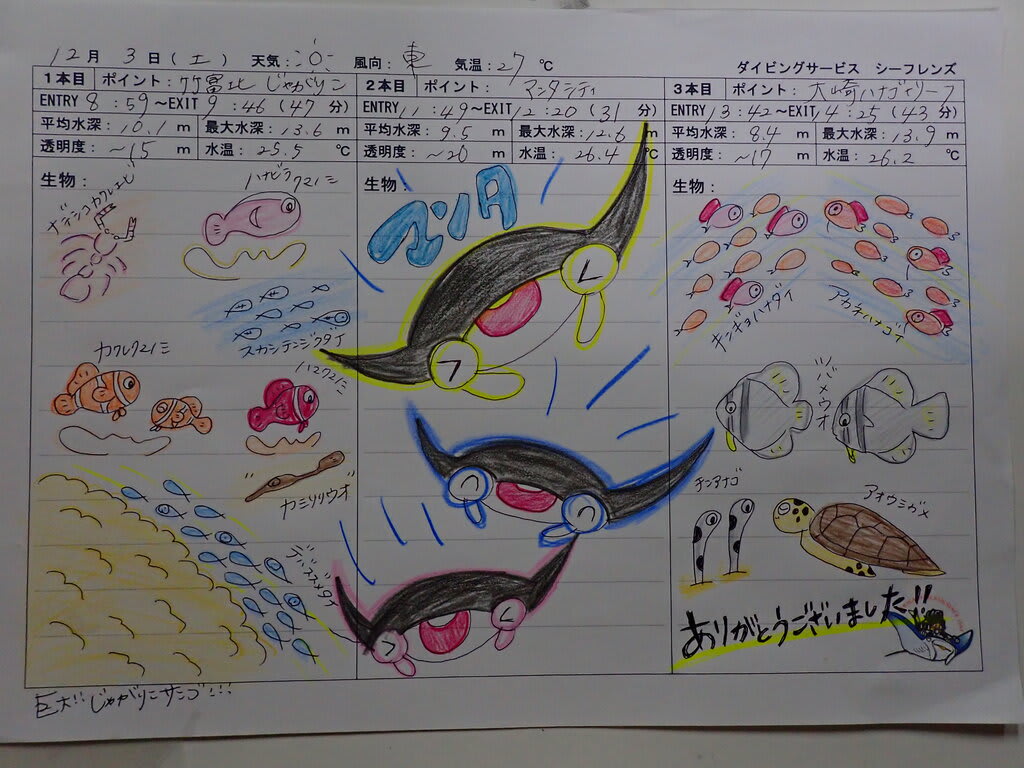 12月 3日(土) 天気: 風向:東 気温:27℃
ダイビングサービス シーフレンズ
1本目 ポイント:竹富北 じゃがりこ
ENTRY 8:59～EXIT 9:46(47分)
平均水深:10.1m 最大水深:13.6m
透明度:~15m 水温:25.5℃
生物:
ナデシコカクレエビ
ハナビラクマノミ
スカシテンジクダイ
カクレクマノミ
ハマクマノミ
カミソリウオ
デバスズメダイ
巨大!!じゃがりこサンゴ!!!
2本目 ポイント:マンタシティ
ENTRY 11:49～EXIT 12:20(31分)
平均水深:9.5m 最大水深:12.6m
透明度:~20m 水温:26.4℃
生物:
マンタ
3本目 ポイント:大崎ハナゴイリーフ
ENTRY 13:42～EXIT 14:25(43分)
平均水深:8.4m 最大水深:13.9m
透明度:~17m 水温:26.2℃
生物:
キンギョハナダイ
アカネハナゴイ
ツバメウオ
チンアナゴ
アオウミガメ
ありがとうございました!!